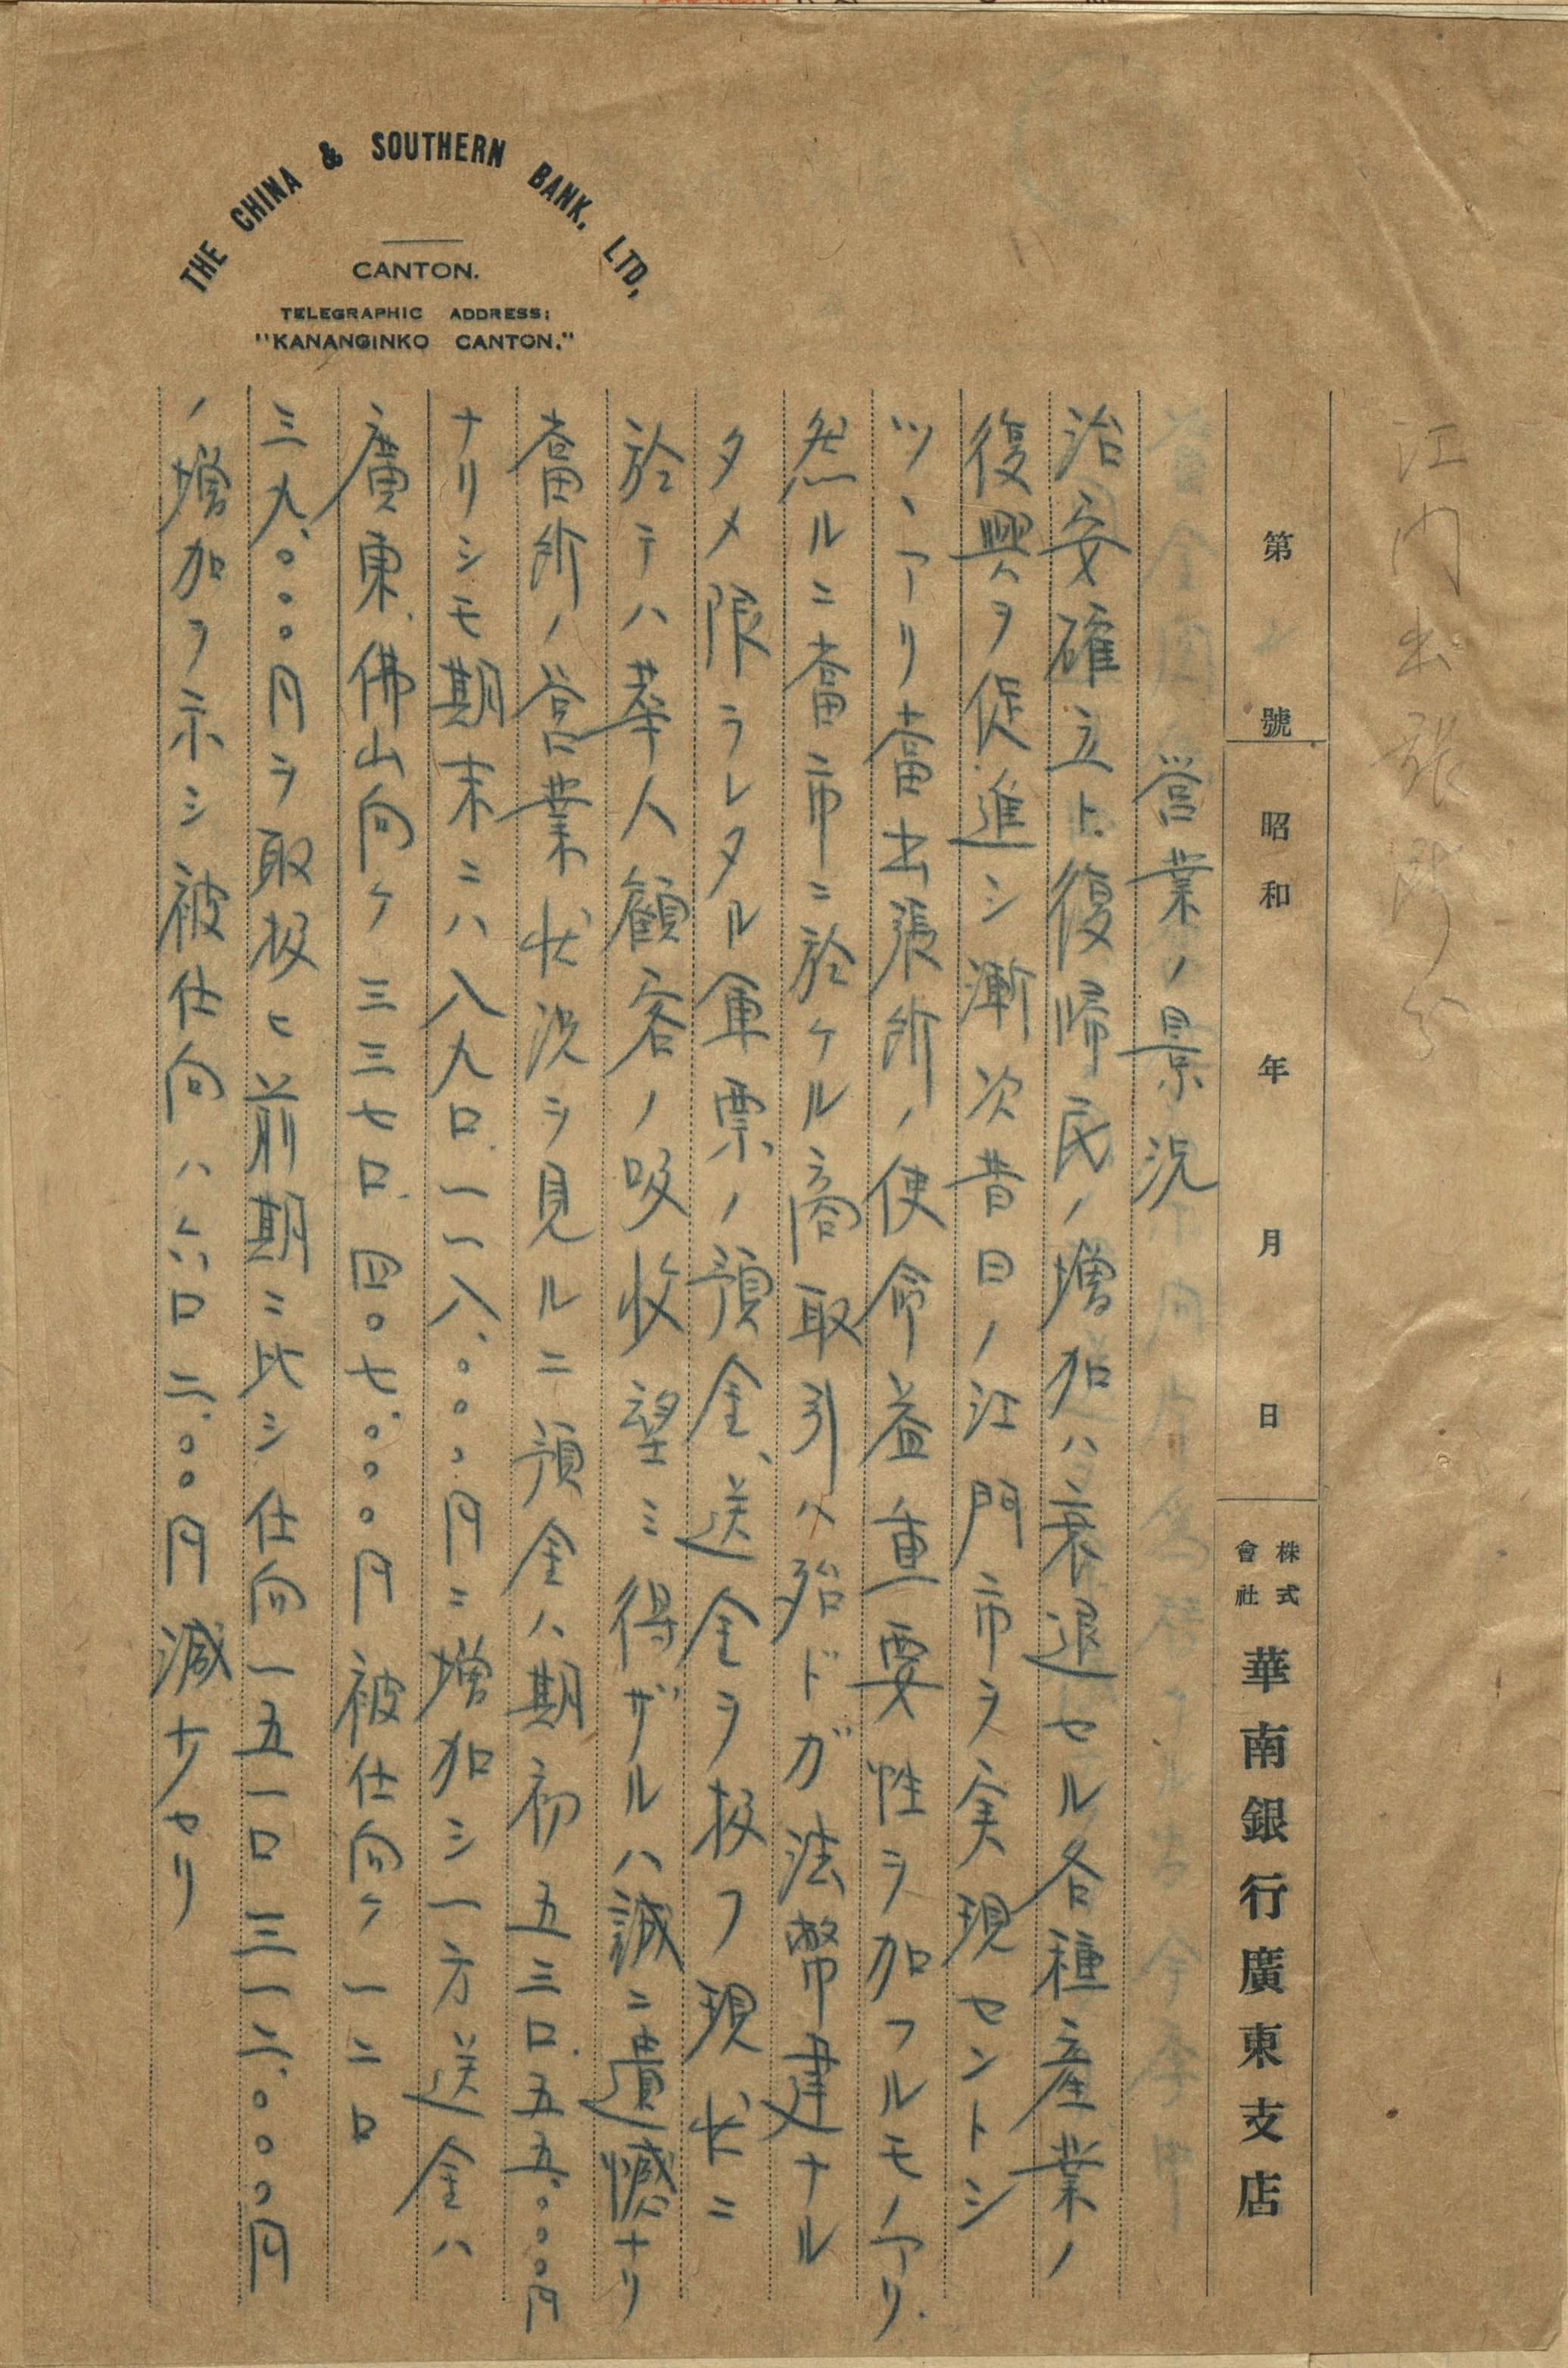 THE CHINA & SOUTHERN BANK, LTD,
CANTON.
TELEGRAPHIC ADDRESS:
"KANANGINKO CANTON."
江门出張所分
第 號 昭和 年 月 日 株式會社 華南銀行廣東支店
営業ノ景況
治安確立ト復帰民ノ増加ハ衰退セル各種産業ノ
復興ヲ促進シ漸次昔日ノ江門市ヲ実現セントシ
ツヽアリ當出張所ノ使命益重要性ヲ加フルモノアリ.
然ルニ當市ニ於ケル商取引ハ殆ドガ法幣建ナル
タメ限ラレタル軍票ノ預金、送金ヲ扱フ現状ニ
於テハ華人顧客ノ吸收望ミ得ザルハ誠ニ遺憾ナリ
當所ノ営業状況ヲ見ルニ預金ハ期初五三口.五五.〇〇〇円
ナリシモ期末ニハ八九口.一一八、〇〇〇円ニ増加シ一方送金ハ
廣東、佛山向ケ三三七口.四〇七.〇〇〇円被仕向ケ一二口
三九、〇〇〇円ヲ取扱ヒ前期ニ比シ仕向一五一口三一二.〇〇〇円
ノ増加ヲ示シ被仕向ハ六口二.〇〇〇円減少セリ